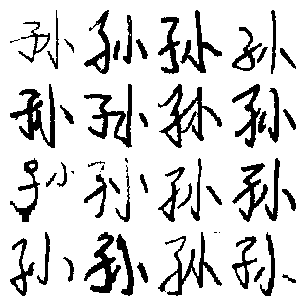 孙孙孙孙
孙孙孙孙
孙孙孙孙
孙孙孙孙